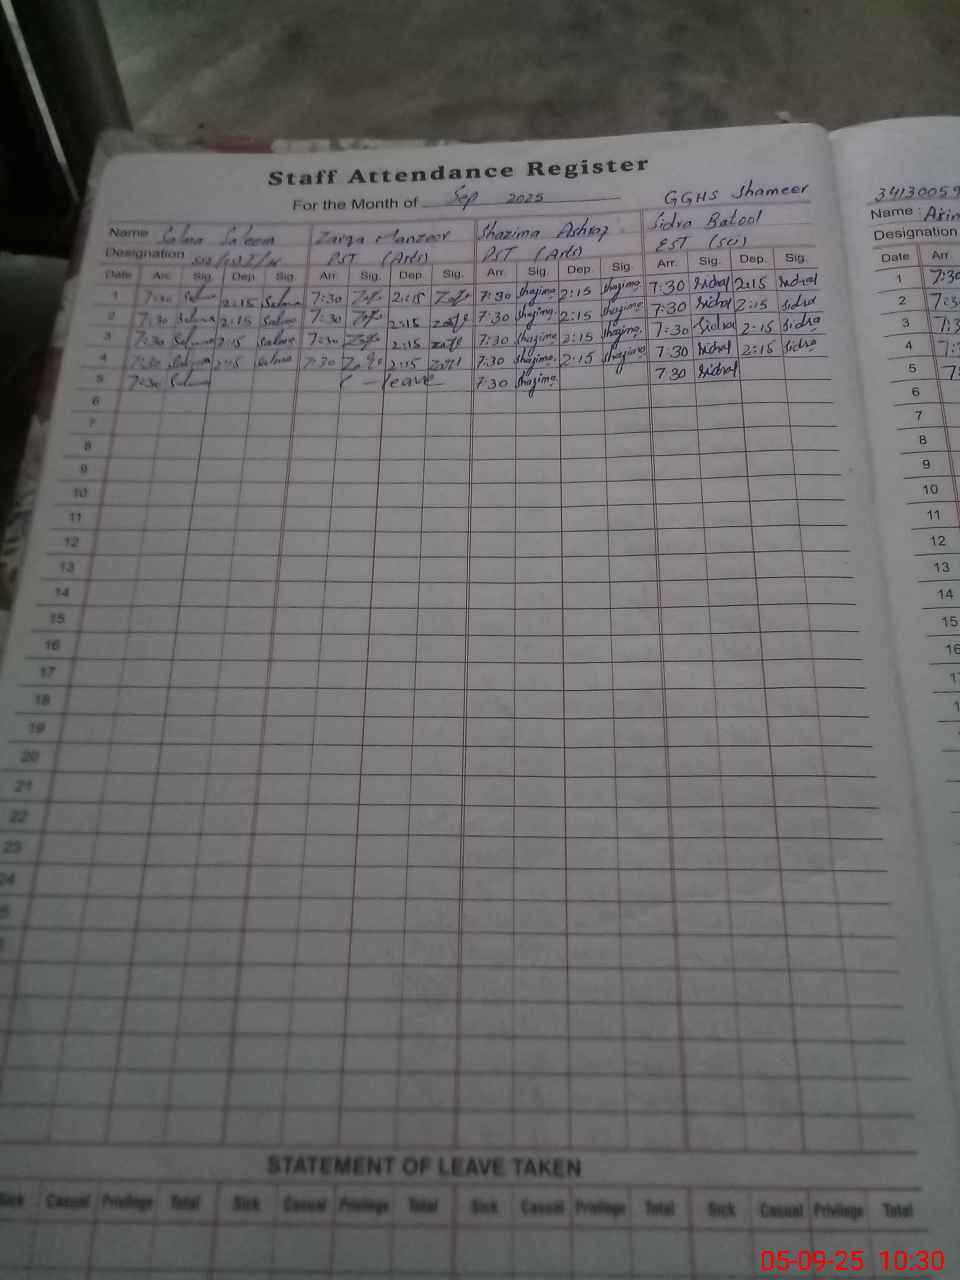 Staff Attendance Register
For the Month of Sep 2025 GGHS Shameer
Name Salma Saleem Zarqa Manzoor Shazima Ashraf Sidra Batool
Designation PST (Arts) PST (Arts) EST (Sci)
Date Arr. Sig. Dep. Sig. Arr. Sig. Dep. Sig. Arr. Sig. Dep. Sig. Arr. Sig. Dep. Sig.
1 7:30 Salma 2:15 Salma 7:30 2:15 7:30 Shazima 2:15 Shazima 7:30 Sidra 2:15 Sidra
2 7:30 Salma 2:15 Salma 7:30 2:15 7:30 Shazima 2:15 Shazima 7:30 Sidra 2:15 Sidra
3 7:30 Salma 2:15 Salma 7:30 2:15 7:30 Shazima 2:15 Shazima 7:30 Sidra 2:15 Sidra
4 7:30 Salma 2:15 Salma 7:30 2:15 7:30 Shazima 2:15 Shazima 7:30 Sidra 2:15 Sidra
5 7:30 Salma leave 7:30 Shazima 7:30 Sidra
6
7
8
9
10
11
12
13
14
15
16
17
18
19
20
21
22
23
24
STATEMENT OF LEAVE TAKEN
Sick Casual Privilege Total Sick Casual Privilege Total Sick Casual Privilege Total Sick Casual Privilege Total
34130059
Name :
Designation
Date Arr
1 7:30
2
3
4
5
6
7
8
9
10
11
12
13
14
15
16
05-09-25 10:30